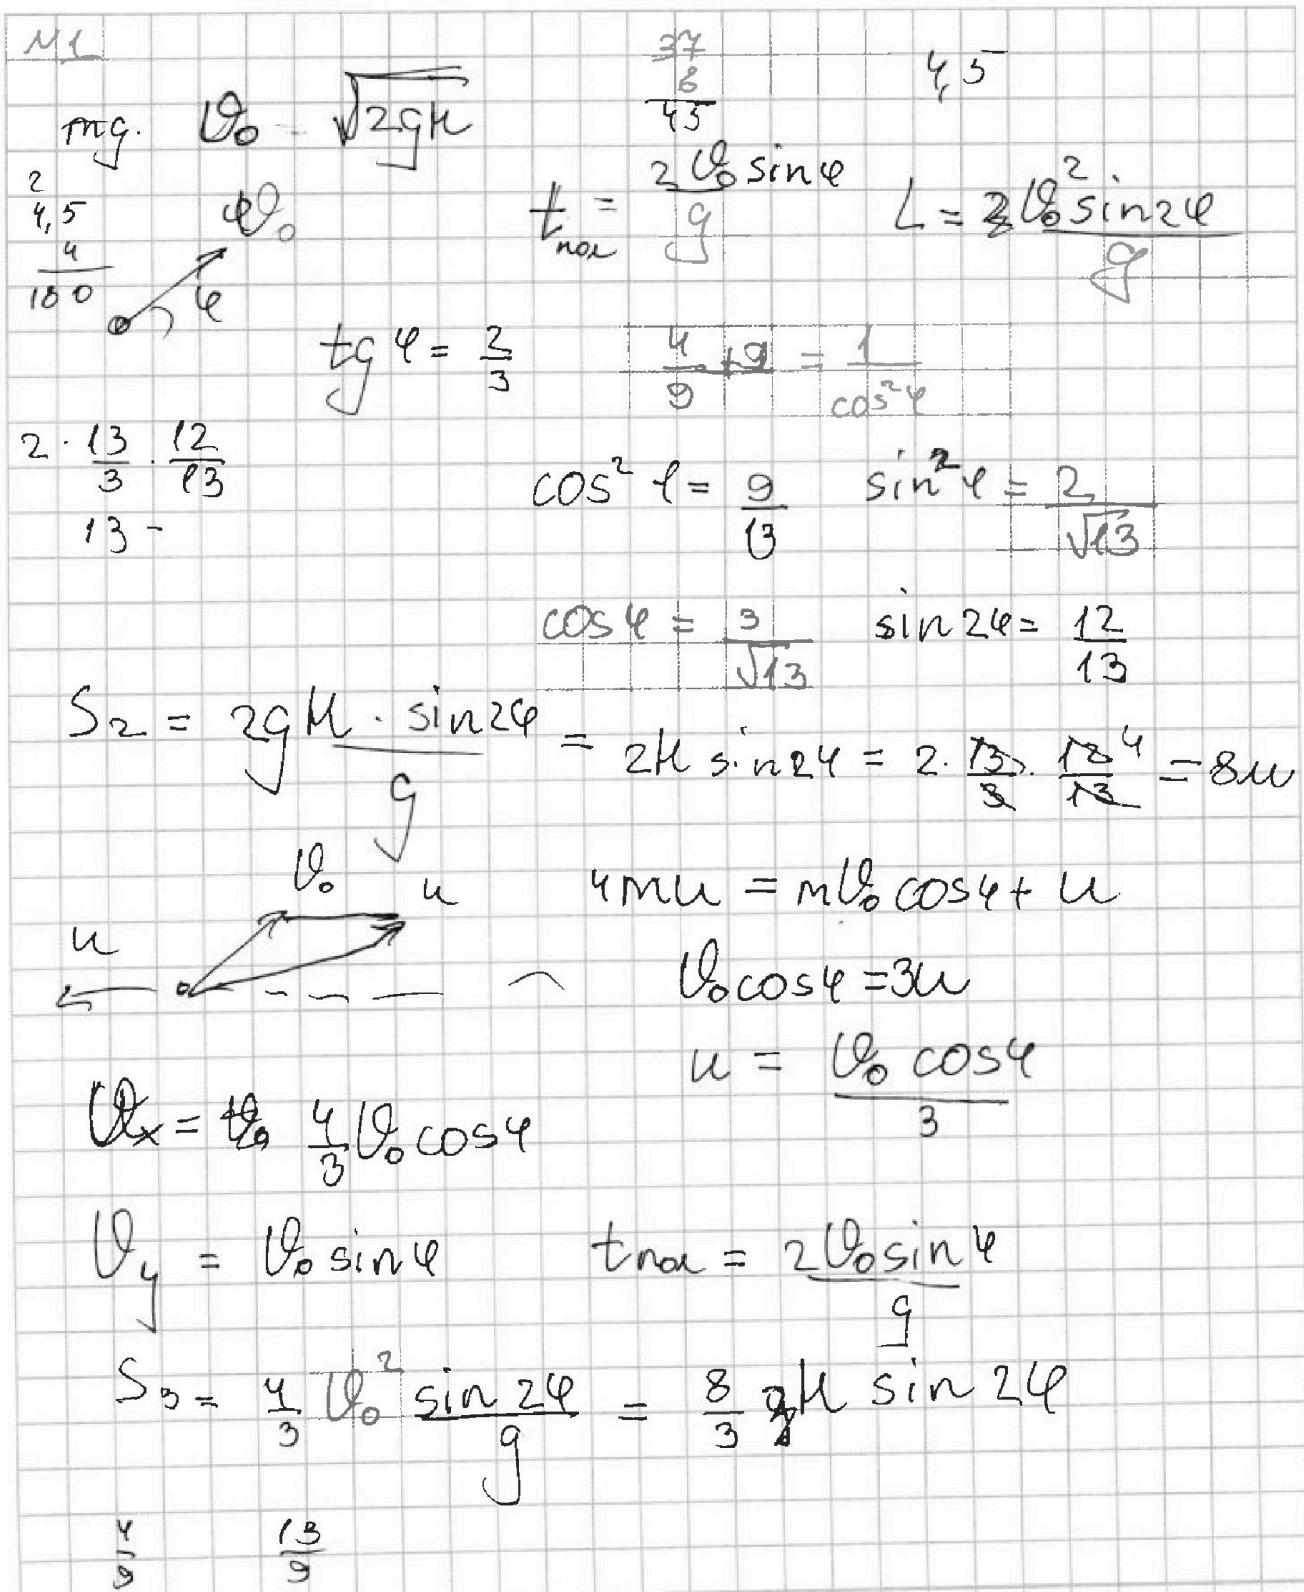 №1
37
8
45
4,5
mg. v₀ = √2gH
2
4,5
4
180
v₀
φ
tпол = 2v₀ sinφ / g
L = v₀² sin2φ / g
tg φ = 2/3
4/9 + 9 = 1/cos²φ
2 · 13/3 · 12/13
13 -
cos² φ = 9/13 sin² φ = 2/√13
cos φ = 3/√13 sin 2φ = 12/13
S₂ = 2gH · sin2φ / g = 2H sin2φ = 2 · 13/3 · 12/13 4 = 8м
v₀ u
u
4mu = mv₀ cosφ + u
v₀ cosφ = 3u
u = v₀ cosφ / 3
vₓ = 4/3 v₀ cosφ
v_y = v₀ sinφ tпол = 2v₀ sinφ / g
S₃ = 4/3 v₀² sin2φ / g = 8/3 H sin 2φ
4/9 13/9